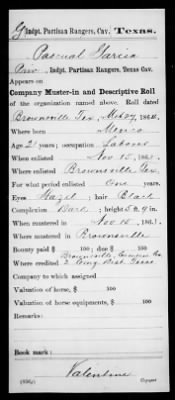 G Indpt. Partisan Rangers, Cav. Texas.
Pascual Garcia
Priv., Indpt. Partisan Rangers, Texas Cav.
Appears on
Company Muster-in and Descriptive Roll
of the organization named above. Roll dated
Brownsville Tex, 186
Where born Mexico
Age 21 years; occupation Laborer
When enlisted Nov 15, 1863.
Where enlisted Brownsville Tex.
For what period enlisted One years.
Eyes Hazel; hair Black
Complexion Dark; height 5 ft. 9 in.
When mustered in Nov 15, 1863.
Where mustered in Brownsville
Bounty paid $ 100; due $ 100
Brownsville, Cameron Co.
Where credited 2 Cong Dist Texas
Company to which assigned
Valuation of horse, $ 100
Valuation of horse equipments, $ 100
Remarks:
Book mark:
Valentine
Copyist